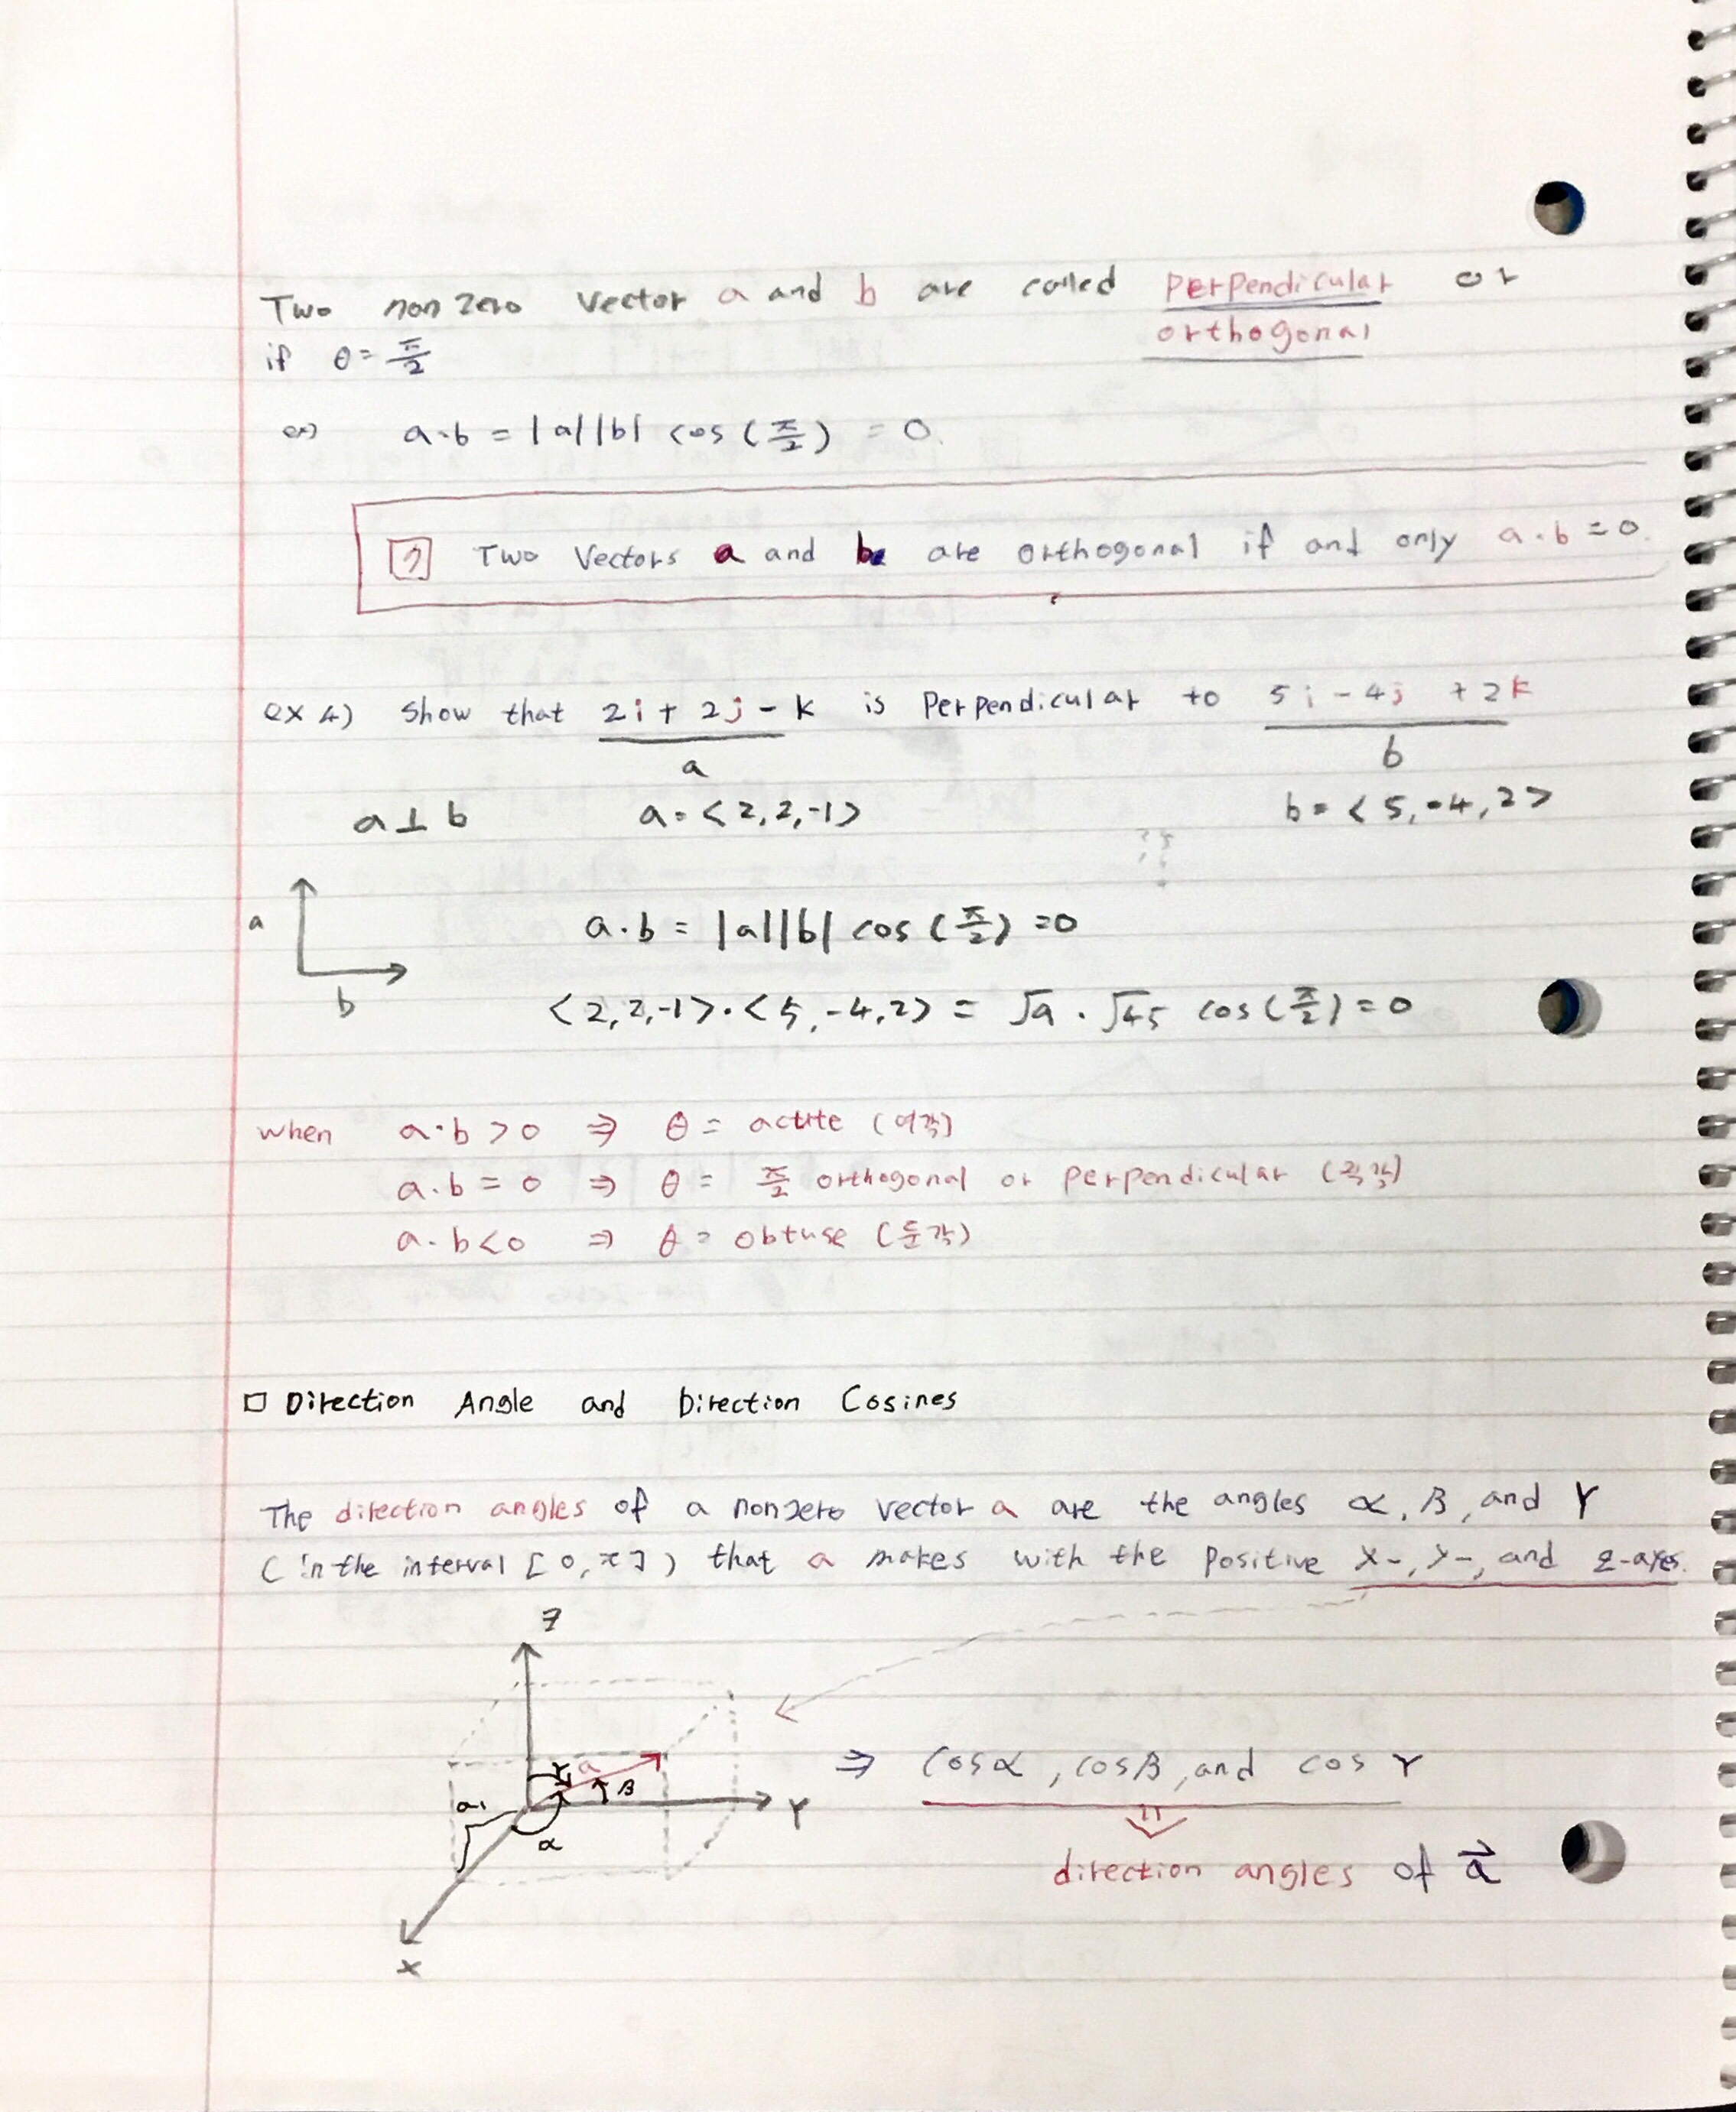 Two nonzero vector a and b are called perpendicular or
orthogonal
if θ = π/2
ex) a·b = |a||b| cos (π/2) = 0.
7 Two Vectors a and b are orthogonal if and only a·b = 0.
ex 4) Show that 2i + 2j - k is perpendicular to 5i - 4j + 2k
a b
a⊥b a = <2,2,-1> b = <5,-4,2>
a
b
a·b = |a||b| cos (π/2) = 0
<2,2,-1>·<5,-4,2> = √9 · √45 cos(π/2) = 0
when a·b > 0 ⇒ θ = acute (예각)
a·b = 0 ⇒ θ = π/2 orthogonal or perpendicular (직각)
a·b < 0 ⇒ θ = obtuse (둔각)
□ Direction Angle and Direction Cosines
The direction angles of a nonzero vector a are the angles α, β, and γ
(in the interval [0, π]) that a makes with the positive x-, y-, and z-axes.
z
γ a
a₁ β y
α
x
⇒ cosα, cosβ, and cos γ
⇓
direction angles of a⃗